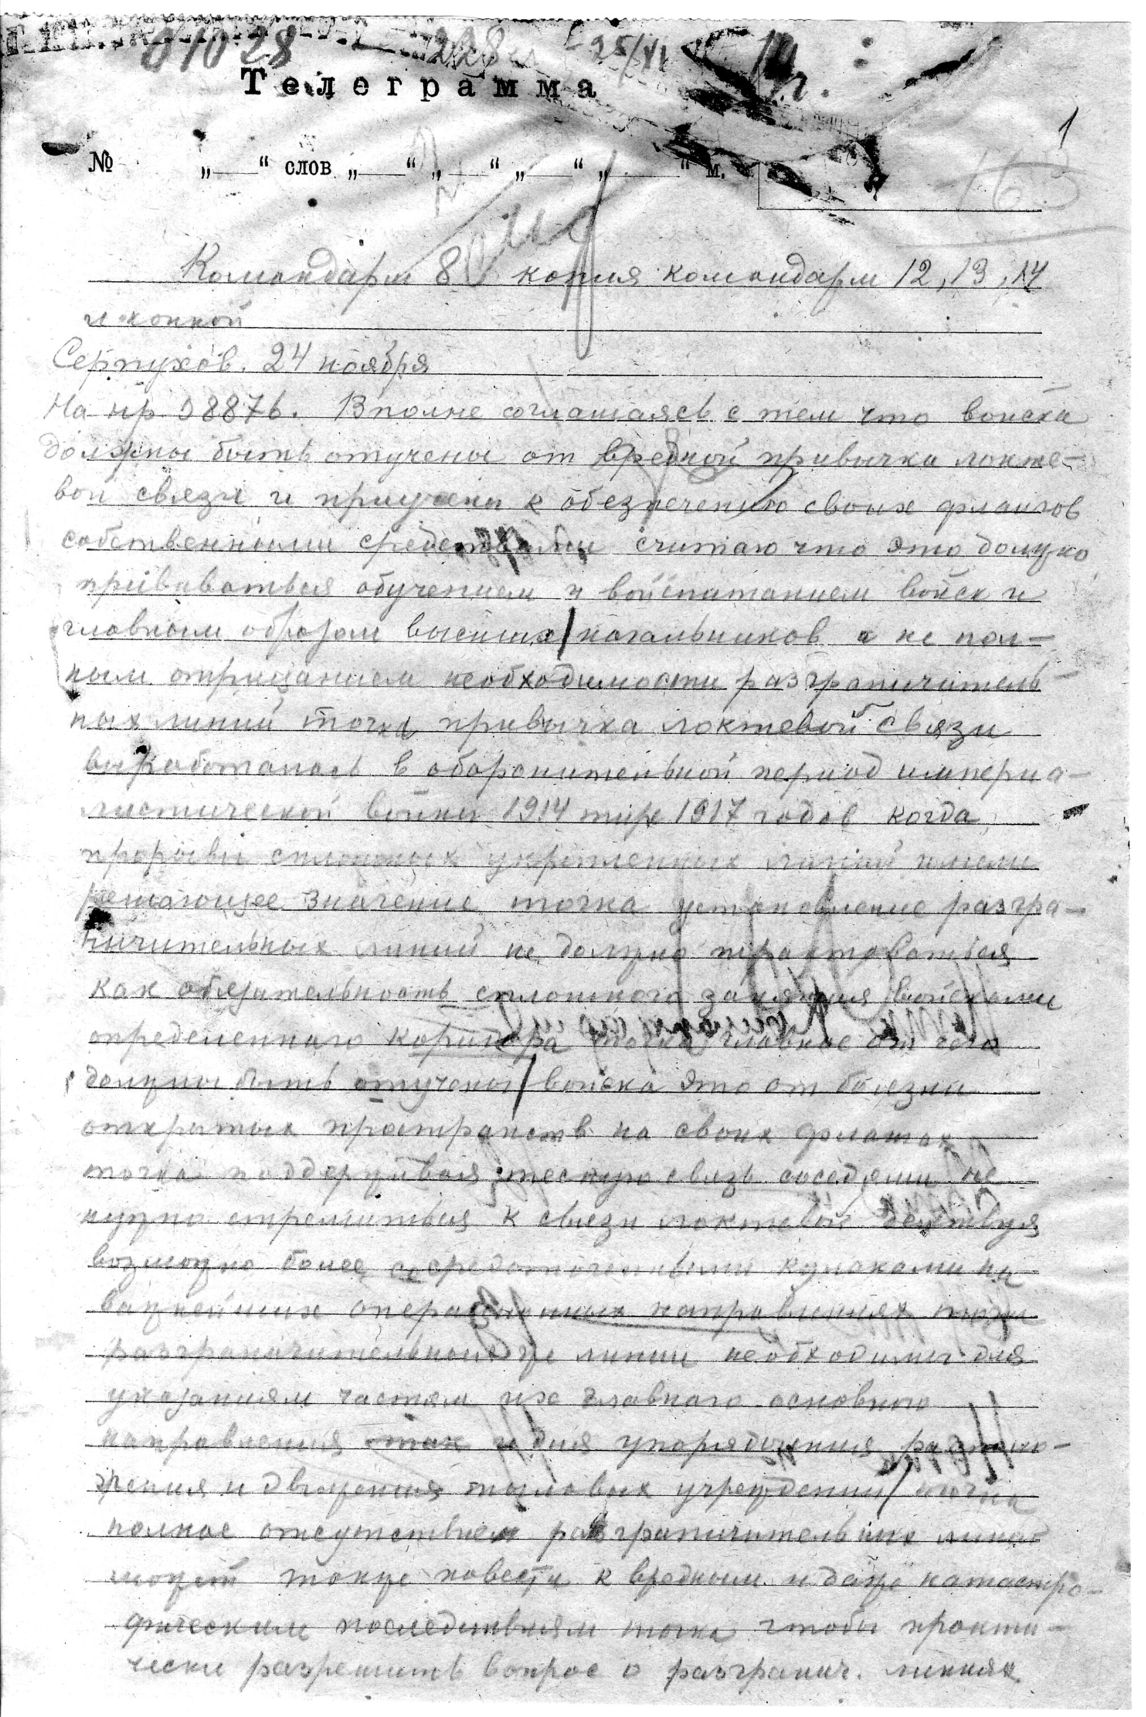 01028 228 25/XI 14г.
Телеграмма
1
№ „ “ слов „ “ „ “ „ “ „ “ м.
163
Командарм 8 копия командарм 12, 13, 14
и конной
Серпухов. 24 ноября
На нр 0887б. Вполне соглашаясь с тем что войска
должны быть отучены от вредной привычки локте-
вой связи и приучены к обезпечению своих флангов
собственными средствами считаю что это должно
прививаться обучением и воспитанием войск и
главным образом высших начальников а не пол-
ным отрицанием необходимости разграничитель-
ных линий точка привычка локтевой связи
выработалась в оборонительной период империа-
листической войны 1914 тире 1917 годов когда
прорывы сплошных укрепленных линий имели
решающее значение точка установление разгра-
ничительных линий не должно трактоваться
как обязательность сплошного занятия войсками
определенного коридора точка главное от чего
должны быть отучены войска это от боязни
открытых пространств на своих флангах
точка поддерживая тесную связь соседями не
нужно стремиться к связи локтевой действуя
возможно более сосредоточенными кулаками на
важнейших операционных направлениях точка
разграничительные же линии необходимы для
указания частям их главного основного
направления так и для упорядочения располо-
жения и движения тыловых учреждений точка
полное отсутствие разграничительных линий
может также повести к вредным и даже катастро-
фическим последствиям точка чтобы практи-
чески разрешить вопрос о разгранич. линиях